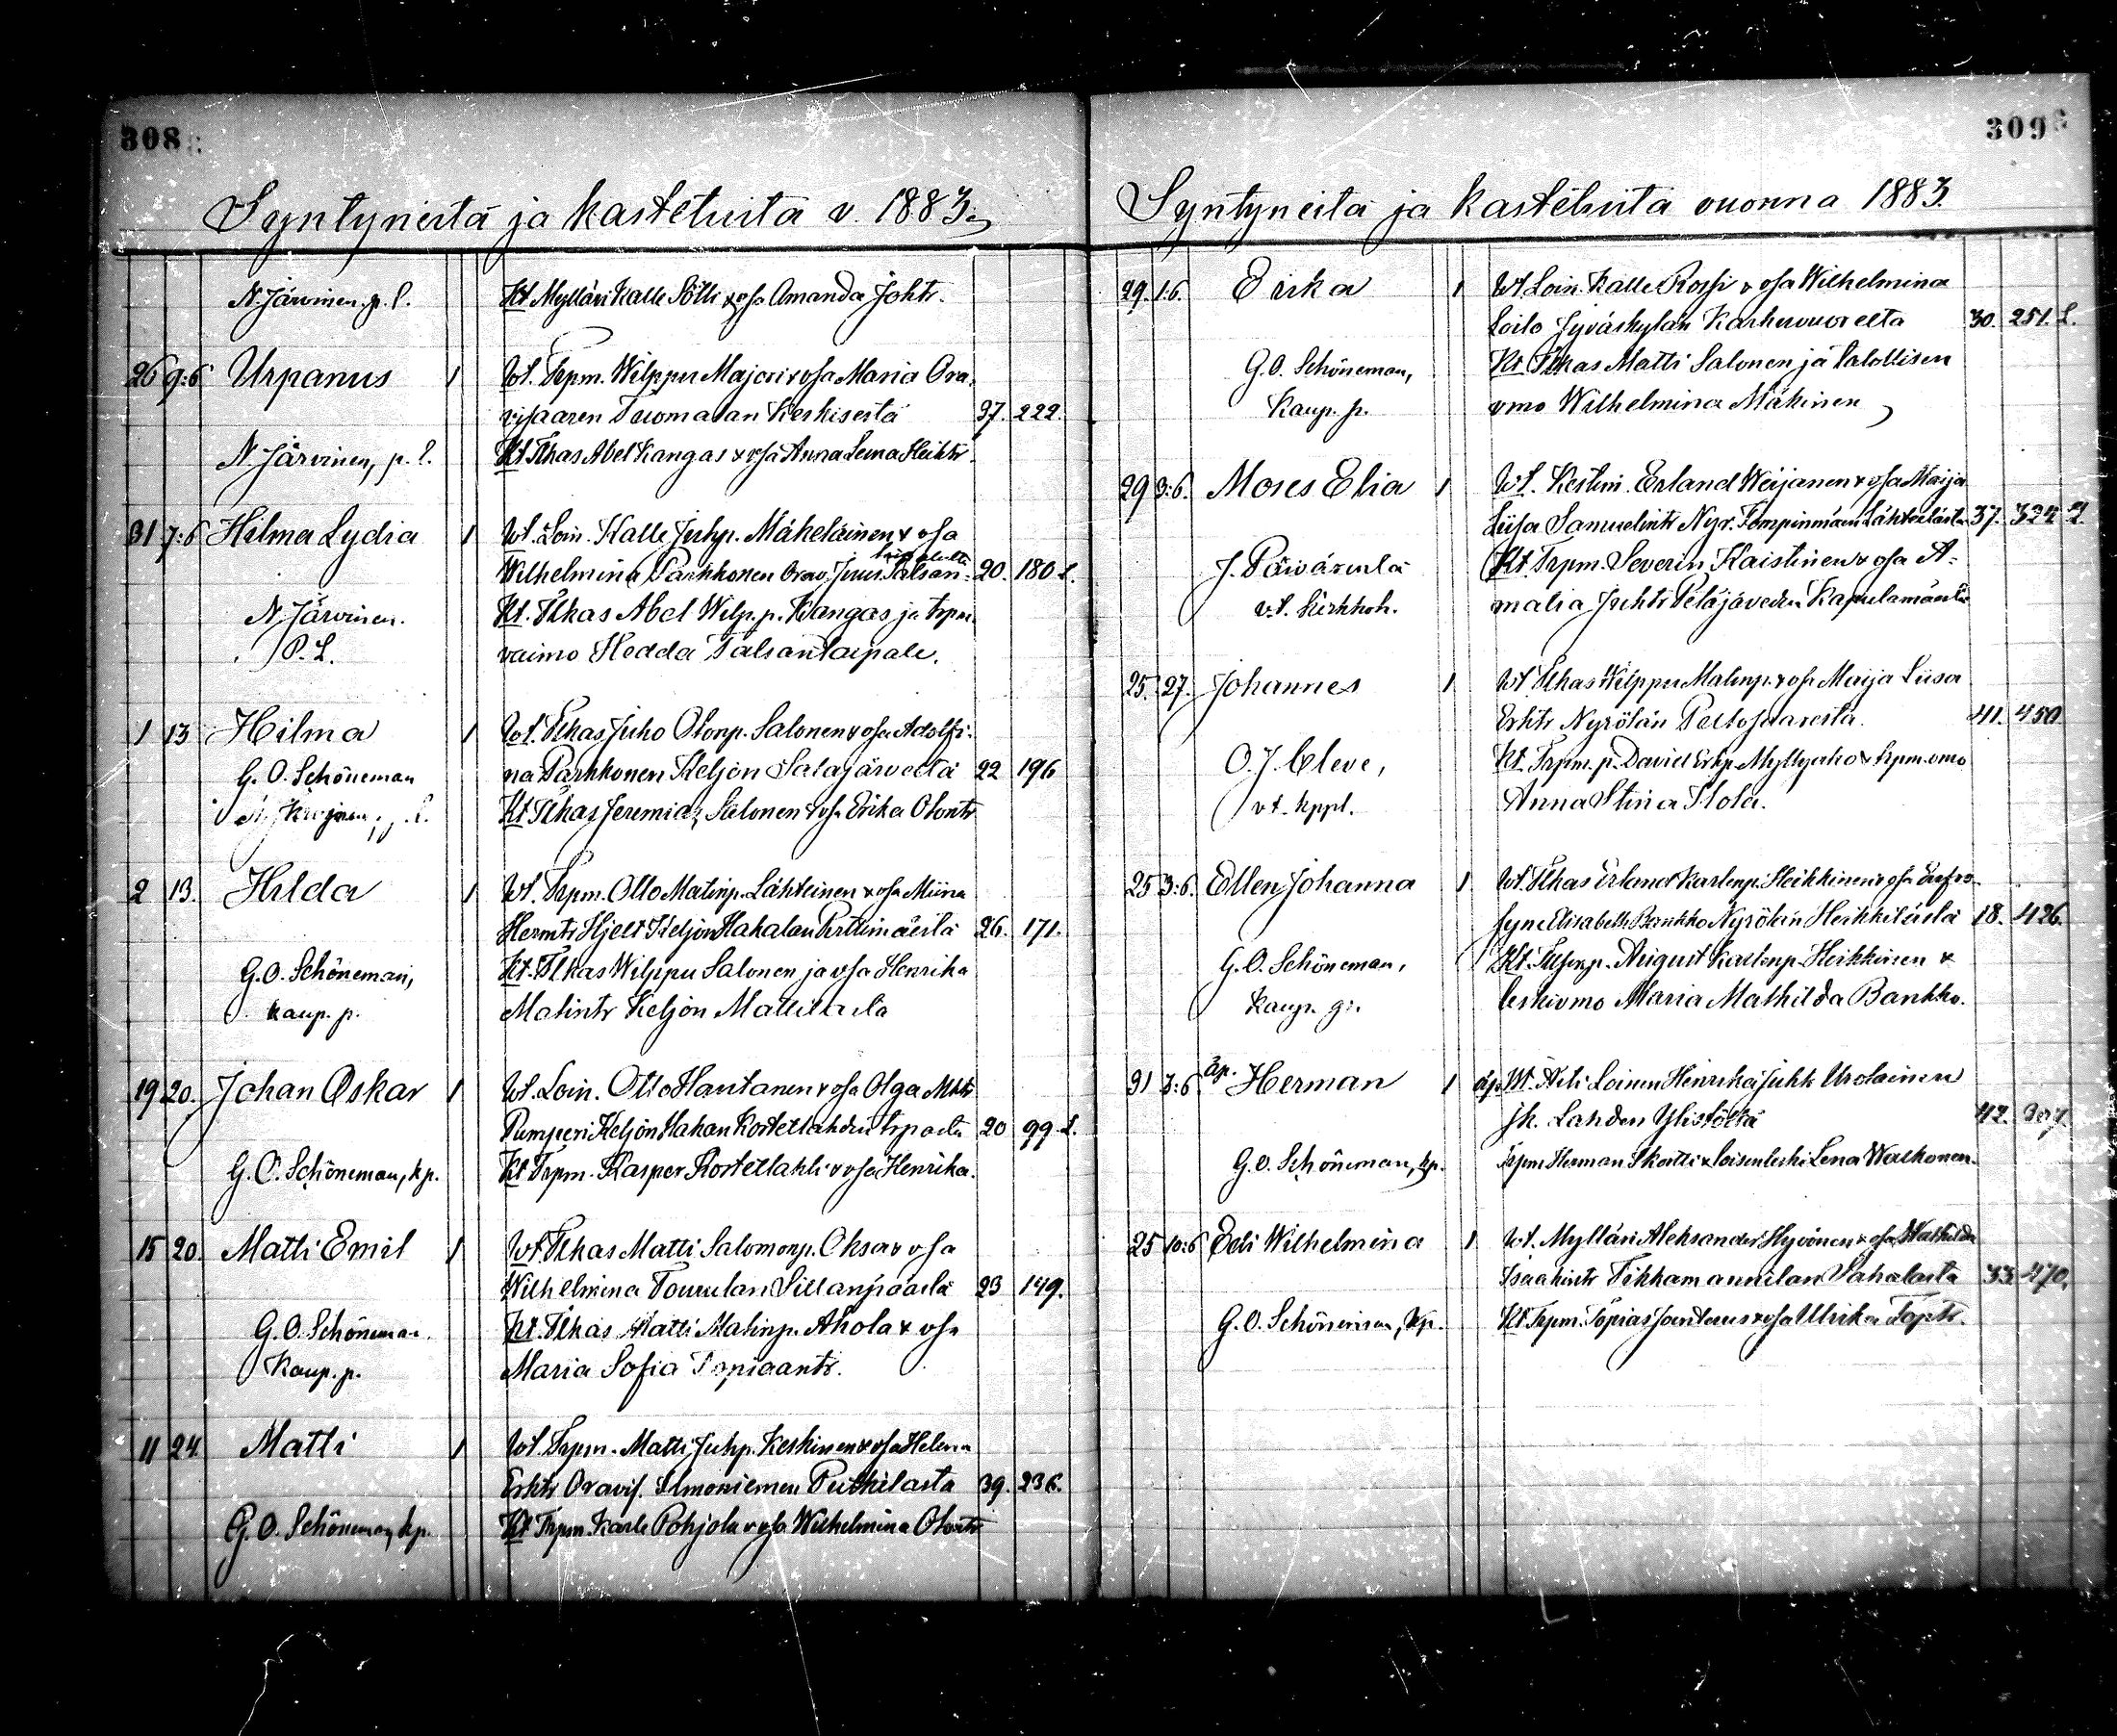 308
Syntyneitä ja kastetuita v. 1883.
N. Järvinen. p. l.
Kt Mylläri Kalle Sötti & vsa Amanda Joht.
26 9:6 Urpanus 1 Wt. Trpm. Wilppu Majori & vsa Maria Ora-
visaaren Tuomalan Keskisestä 37. 222.
N. Järvinen, p. l. Kt Tlkas Abel Kangas & vsa Anna Lena Heiktr.
31 7:6 Hilma Lydia 1 Wt. Loin. Kalle Juhp. Mäkeläinen & vsa
Wilhelmina Parkkonen Orav. Juus. Talsan- 20. 180 L.
N. Järvinen. Kt. Tlkas Abel Wilp. p. Kangas ja trpm.
P. L. vaimo Hedda Talsantaipale.
1 13 Hilma 1 Wt. Tlkas Juho Otonp. Salonen & vsa Adolfi-
G. O. Schöneman na Parkkonen Keljon Salajärveltä 22 196
Kt Tlkas Jeremias Salonen & vsa Erika Otontr
2 13. Hilda 1 Wt. Trpm. Otto Matinp. Lähteinen & vsa Miina
Hermtr Hjelt Keljon Hakalan Perttimäeilä 26. 171.
G. O. Schöneman, Kt. Tlkas Wilppu Salonen ja vsa Henrika
kaup. p. Matintr Keljon Mattilasta
19 20. Johan Oskar 1 Wt. Loin. Otto Hautanen & vsa Olga Mttr
Pumperi Keljon Hakan Kortetlahden trpasta 20 99 L.
G. O. Schöneman, kp. Kt Trpm. Kasper Kortetlahti & vsa Henrika.
15 20. Matti Emil 1 Wt. Tlkas Matti Salomonp. Oksa & vsa
Wilhelmina Tourulan Sillanpäästä 23 149.
G. O. Schöneman. Kt. Tlkas Matti Matinp. Ahola & vsa
Kaup. p. Maria Sofia Topiaantr.
11 24. Matti 1 Wt. Trpm. Matti Juhp. Keskinen & vsa Helena
Erktr Oravis. Putkilasta 39. 236.
G. O. Schöneman, kp. Kt Trpm. Karle Pohjola & vsa Wilhelmina Otontr
309
Syntyneitä ja kastetuita vuonna 1883.
29. 1:6. Erika 1 Wt. Loin. Kalle Rossi & vsa Wilhelmina
Loilo Jyväskylän Karhuvuorelta 30. 251. L.
G. O. Schöneman, Kt Tlkas Matti Salonen ja talollisen
Kaup. p. vmo Wilhelmina Mäkinen
29 3:6. Moses Elia 1 Wt. Kestin. Erland Weijanen & vsa Maija
Liisa Samuelintr Nyr. Tompinmäen Lähteelästä 37. 324 L.
J. Päivärinta Kt. Trpm. Severin Kaistinen & vsa A-
v.t. Kirkkoh. malia Juhtr Petäjäveden Kapulamäeltä
25. 27. Johannes 1 Wt. Tlkas Wilppu Matinp. & vsa Maija Liisa
Erktr Nyrölän Peltosaaresta. 41. 450.
O. J. Cleve, Kt Trpm. p. David Erkp. Myllyaho & trpm. vmo
v.t. kppl. Anna Stina Stola.
25 3:6. Ellen Johanna 1 Wt. Tlkas Erland Karlenp. Heikkinen & vsa Eufro-
syne Elisabeth Bankko Nyrölän Heikkilästä 18. 426.
G. O. Schöneman, Kt. August Karlenp. Heikkinen &
Kaup. p. leskivmo Maria Mathilda Bankko.
31 3:6. äp. Herman 1 äp. Wt. Äiti Loinen Henrika Juhtr Urolainen
Jk. Lahden Ylistöltä 42. 307.
G. O. Schöneman, kp. Trpm Herman Skatti & loisenleski Lena Walkonen.
25 10:6 Edi Wilhelmina 1 Wt. Mylläri Aleksander Hyvönen & vsa Mathilda
Isaakintr Tikkamannilan Sahalasta 33 470.
G. O. Schöneman, kp. Kt Trpm. Topias Jontenus & vsa Ulrika Toptr.